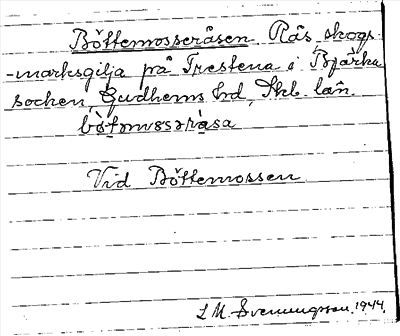 Böttemosseråsen Rås, skogs-
-marksgilja på Trestena i Bjärka
socken, Gudhems hd, Skb. län.
bòtəmɷsəràsa
Vid Böttemossen
L M Svenungsson. 1944.